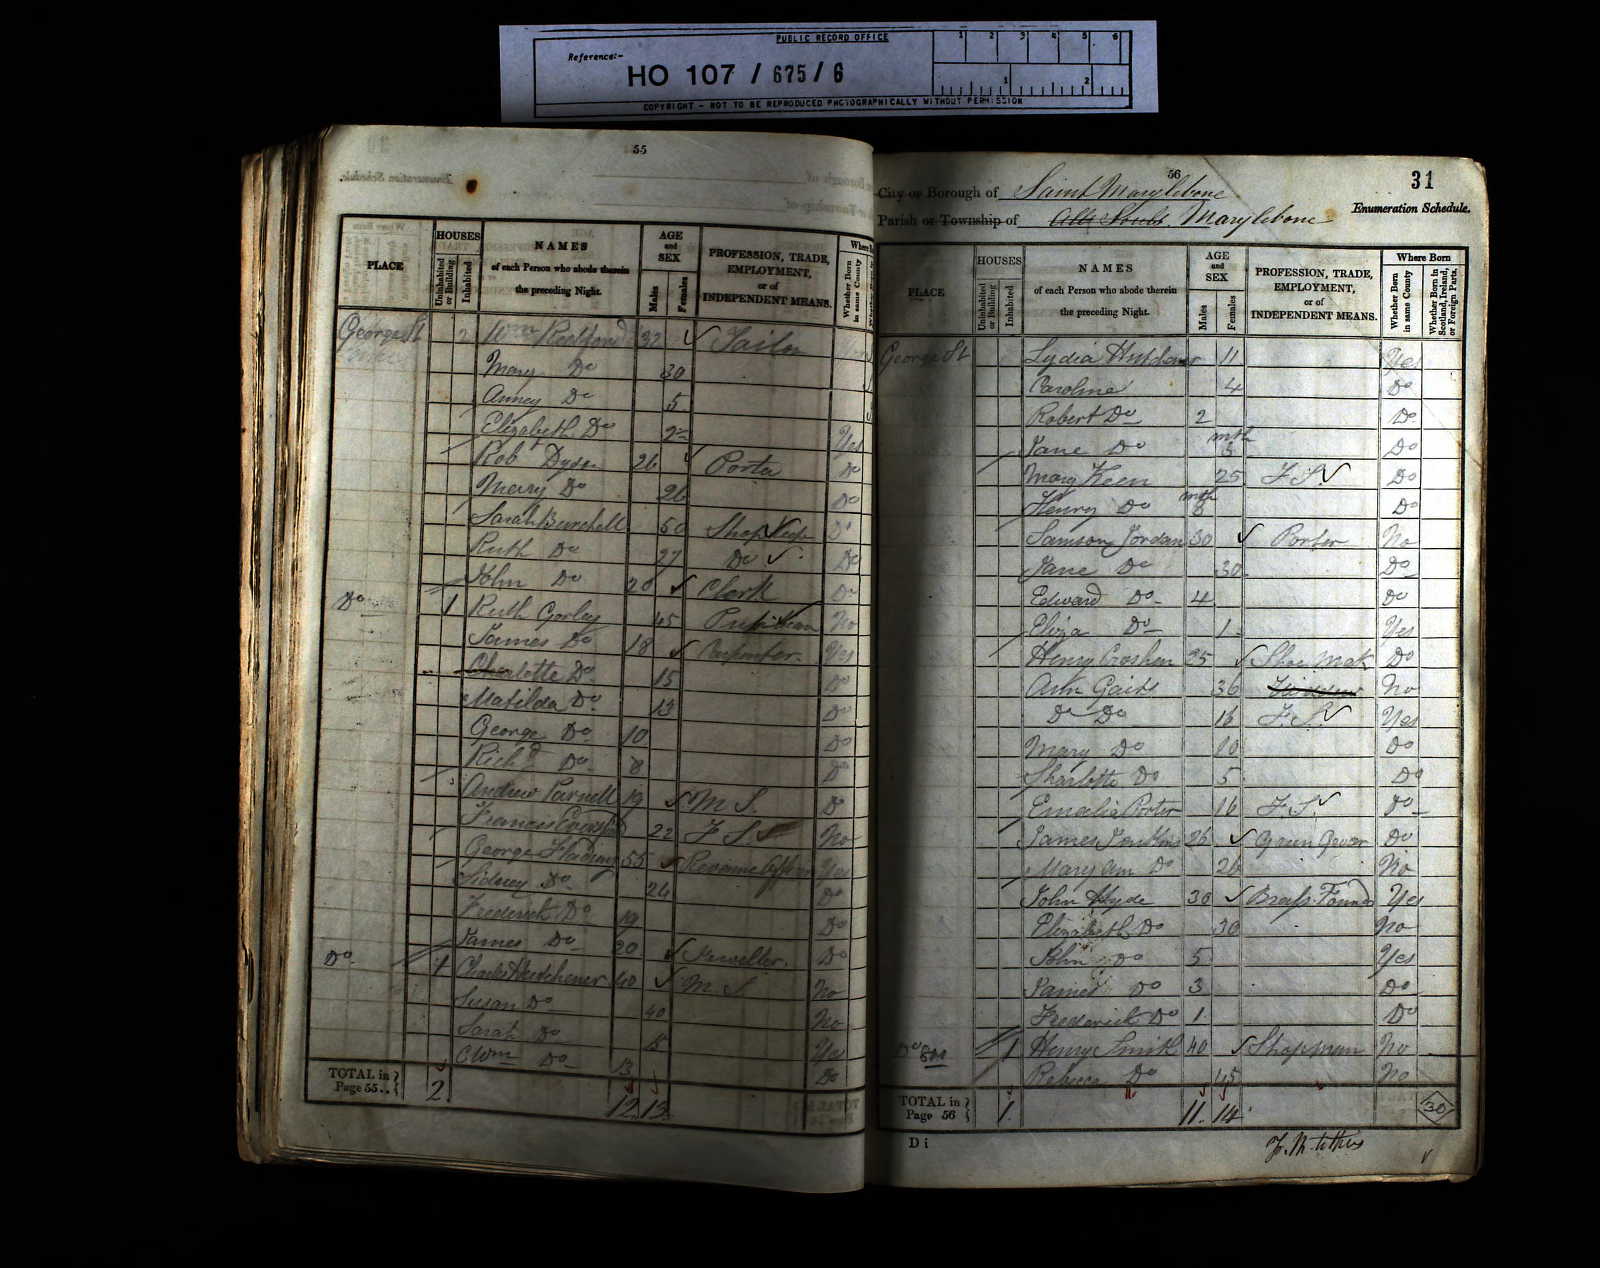 PUBLIC RECORD OFFICE
Reference:-
HO 107 / 675/6
1 2 3 4 5 6
1 2
COPYRIGHT - NOT TO BE REPRODUCED PHOTOGRAPHICALLY WITHOUT PERMISSION
55
PLACE
HOUSES
Uninhabited or Building
Inhabited
NAMES
of each Person who abode therein
the preceding Night.
AGE
and
SEX
Males
Females
PROFESSION, TRADE,
EMPLOYMENT,
or of
INDEPENDENT MEANS.
Whether Born
in same County
George St 2 Wm 32
Mary Do 30
Do 5
Elizabeth Do 2 Yes
Rob 26 Porter Do
Mary Do 26 Do
Sarah Burchell 50 Shop Do
Ruth Do 27 Do Do
John Do 20 Clerk Do
Do 1 Ruth Gorley 45 No
James Do 18 Carpenter Yes
Charlotte Do 15 Do
Matilda Do 13 Do
George Do 10 Do
Richd Do 8 Do
Andrew Parnell 19 M S. Do
Francis 22 F S. No
George 55 Yes
Sidney Do 24 Do
Frederick Do 19 Do
James Do 20 Jeweller. Do
Do 1 Charles Hutchener 40 M S No
Susan Do 40 No
Sarah Do 15 Yes
Do 13 Do
TOTAL in
Page 55..
2
12 13
56
31
City or Borough of Saint Marylebone
Enumeration Schedule.
Parish or Township of All Souls. Marylebone
PLACE
HOUSES
Uninhabited or Building
Inhabited
NAMES
of each Person who abode therein
the preceding Night.
AGE
and
SEX
Males
Females
PROFESSION, TRADE,
EMPLOYMENT,
or of
INDEPENDENT MEANS.
Where Born
Whether Born in same County
Whether Born in Scotland, Ireland, or Foreign Parts.
George St Lydia Hutchener 11 Yes
Caroline 4 Do
Robert Do 2 Do
Jane Do mth Do
Mary Keen 25 F. S. Do
Henry Do mth 8 Do
Samson Jordan 30 Porter No
Jane Do 30 Do
Edward Do 4 Do
Eliza Do 1 Yes
Henry 35 Shoe Mak Do
Ann 36 No
Do Do 16 F. S. Yes
Mary Do 10 Do
Sharlotte Do 5 Do
Emalia Porter 16 F. S. Do
James 26 Green Do
Mary Ann Do 26 No
John Hyde 30 Brass Found Yes
Elizabeth Do 30 No
John Do 5 Yes
James Do 3 Do
Frederick Do 1 Do
Do 1 Henry Smith 40 Shopman No
Rebecca Do 45 No
TOTAL in
Page 56
1
11. 14
30
D i